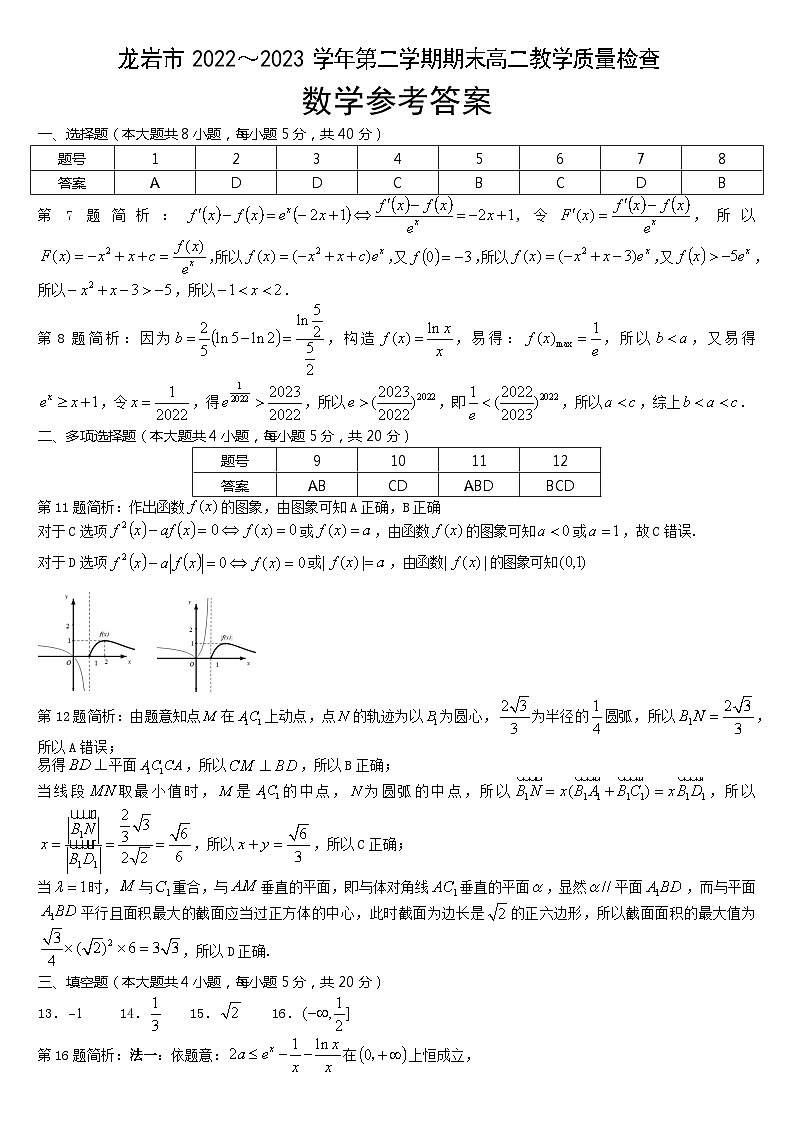 龙岩市 2022～2023 学年第二学期期末高二教学质量检查
数学参考答案
一、选择题（本大题共 8 小题，每小题 5 分，共 40 分）
题号 1 2 3 4 5 6 7 8
答案 A D D C B C D B
第 7 题 简 析 ： f′(x)−f(x)=e^x(−2x+1)⇔(f′(x)−f(x))/e^x=−2x+1, 令 F′(x)=(f′(x)−f(x))/e^x, 所 以
F(x)=−x²+x+c=f(x)/e^x,所以 f(x)=(−x²+x+c)e^x,又 f(0)=−3,所以 f(x)=(−x²+x−3)e^x,又 f(x)>−5e^x,
所以−x²+x−3>−5,所以−1<x<2.
第 8 题简析：因为 b=2/5(ln5−ln2)=ln(5/2)/(5/2), 构造 f(x)=ln x/x, 易得：f(x)max=1/e, 所以 b<a, 又易得
e^x≥x+1,令 x=1/2022,得 e^(1/2022)>2023/2022,所以 e>(2023/2022)^2022,即 1/e<(2022/2023)^2022,所以 a<c,综上 b<a<c.
二、多项选择题（本大题共 4 小题，每小题 5 分，共 20 分）
题号 9 10 11 12
答案 AB CD ABD BCD
第 11 题简析：作出函数 f(x) 的图象，由图象可知 A 正确，B 正确
对于 C 选项 f²(x)−af(x)=0⇔f(x)=0 或 f(x)=a，由函数 f(x) 的图象可知 a<0 或 a=1，故 C 错误.
对于 D 选项 f²(x)−a|f(x)|=0⇔f(x)=0 或|f(x)|=a，由函数|f(x)|的图象可知(0,1)
y 2 1 f(x) O 1 2 x
y 2 1 |f(x)| O 1 x
第 12 题简析：由题意知点 M 在 A₁C₁ 上动点，点 N 的轨迹为以 B₁ 为圆心，2√3/3 为半径的 1/4 圆弧，所以 B₁N=2√3/3,
所以 A 错误；
易得 BD⊥平面 A₁C₁CA，所以 CM⊥BD，所以 B 正确；
当线段 MN 取最小值时，M 是 A₁C₁ 的中点，N 为圆弧的中点，所以 B₁N=x(B₁A₁+B₁C₁)=xB₁D₁，所以
x=|B₁N|/|B₁D₁|=(2/3√3)/(2√2)=√6/6，所以 x+y=√6/3，所以 C 正确；
当 λ=1 时，M 与 C₁ 重合，与 AM 垂直的平面，即与体对角线 AC₁ 垂直的平面 α，显然 α//平面 A₁BD，而与平面
A₁BD 平行且面积最大的截面应当过正方体的中心，此时截面为边长是 √2 的正六边形，所以截面面积的最大值为
√3/4×(√2)²×6=3√3，所以 D 正确.
三、填空题（本大题共 4 小题，每小题 5 分，共 20 分）
13. −1 14. 1/3 15. √2 16. (−∞,1/2]
第 16 题简析：法一：依题意：2a≤e^x−1/x−ln x/x 在(0,+∞)上恒成立,